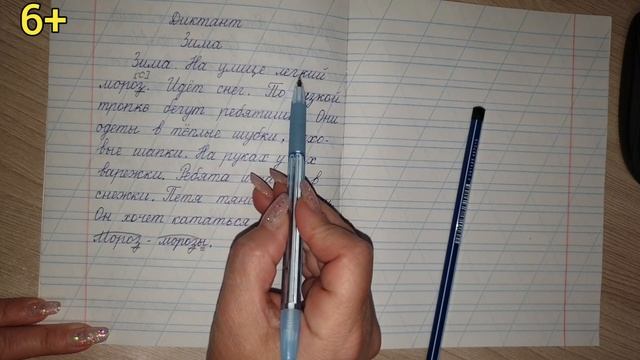 6+
Диктант
Зима
Зима. На улице легкий
[с]
мороз. Идёт снег. По узкой
тропке бегут ребятишки. Они
одеты в тёплые шубки,
вые шапки. На руках у них
варежки. Ребята в
снежки. Петя
Он хочет кататься
Мороз - морозы.